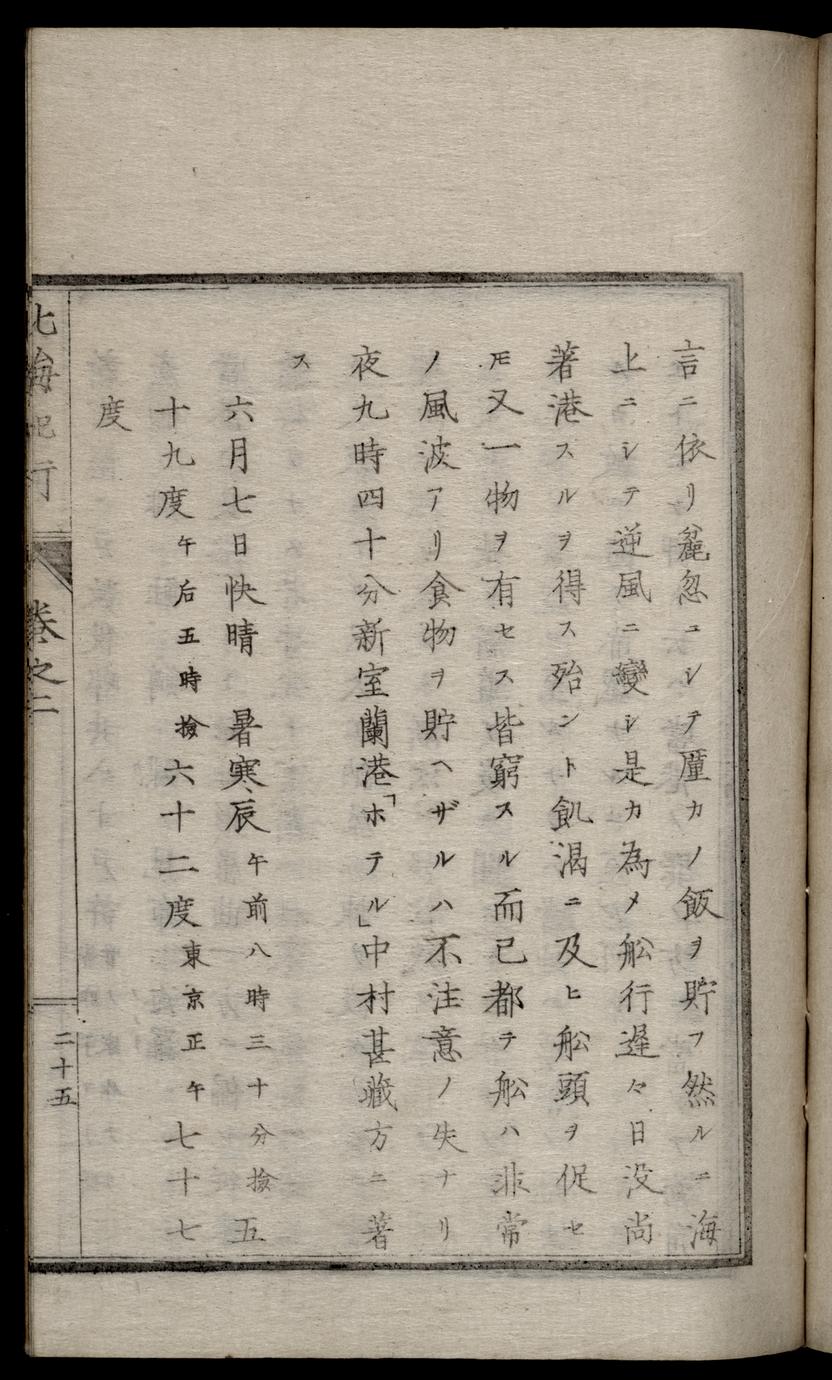 言ニ依リ麁忽ニシテ厪カノ飯ヲ貯フ然ルニ海
上ニシテ逆風ニ變シ是カ為メ舩行遅々日没尚
著港スルヲ得ス殆ント飢渇ニ及ヒ舩頭ヲ促セ
𪜈又一物ヲ有セス皆窮スル而已都テ舩ハ非常
ノ風波アリ食物ヲ貯ヘザルハ不注意ノ失ナリ
夜九時四十分新室蘭港「ホテル」中村甚藏方ニ著
ス
六月七日快晴 暑寒辰午前八時三十分撿五
十九度午后五時撿六十二度東京正午七十七
度
北海紀行 卷之二 二十五